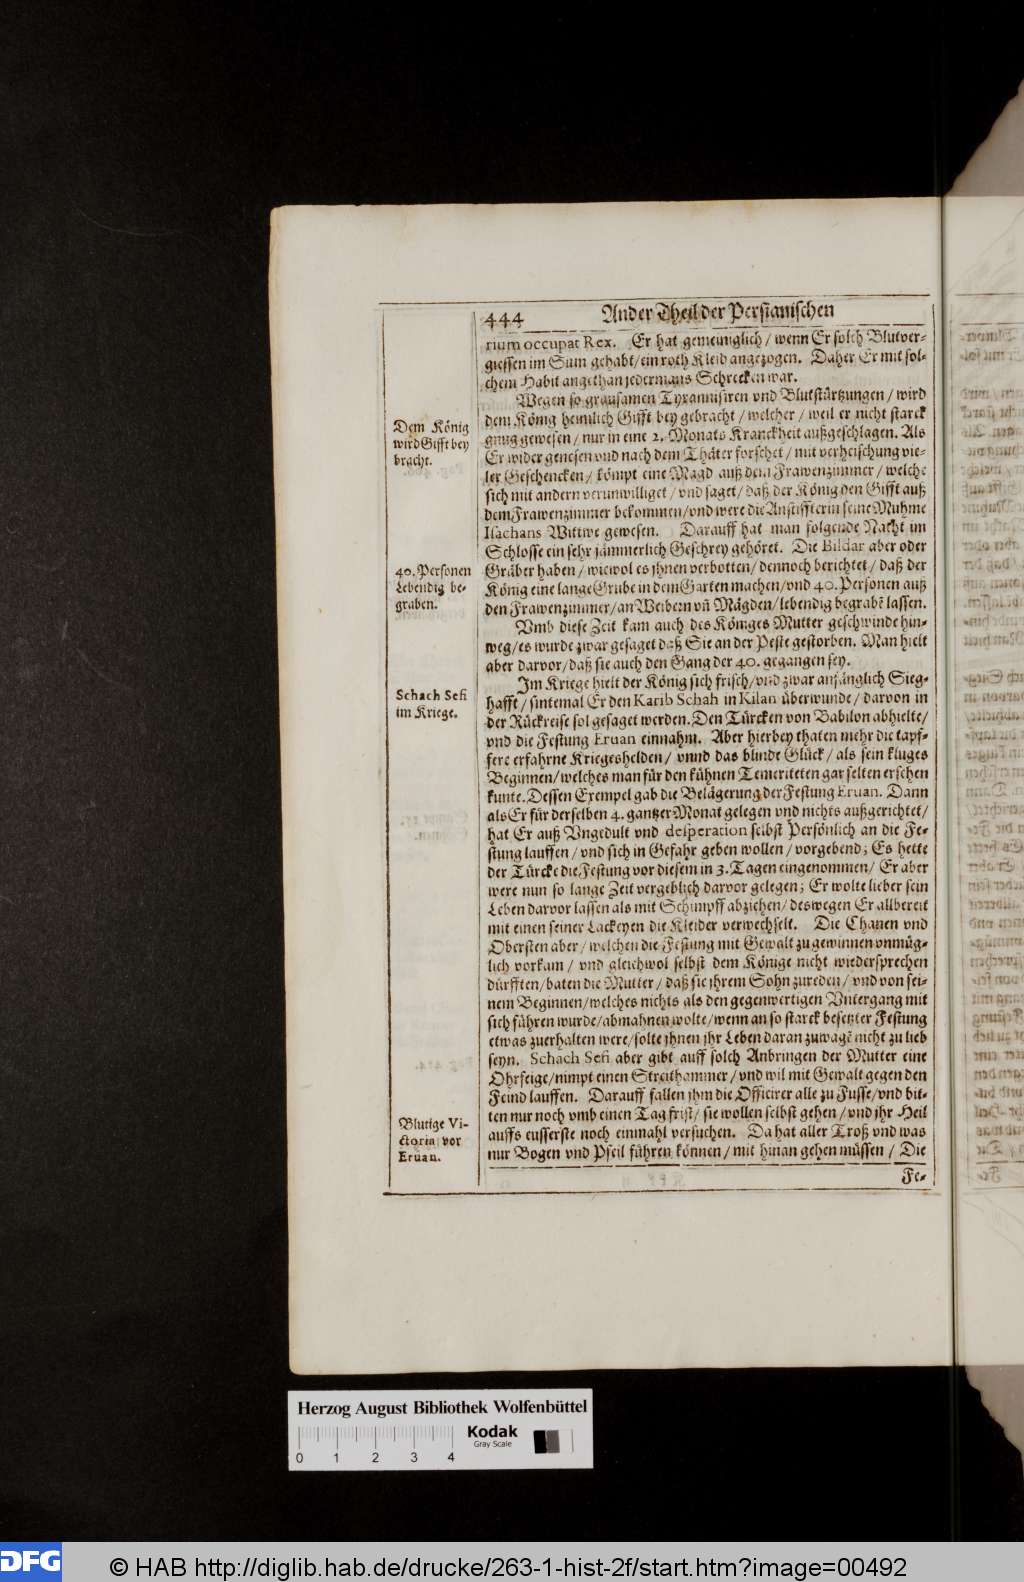 444 Ander Theil der Persianischen
rium occupat Rex. Er hat gemeiniglich / wenn Er solch Blutver-
giessen im Sinn gehabt / ein roth Kleid angezogen. Daher Er mit sol-
chem Habit angethan jedermans Schrecken war.
Wegen so grausamen Tyrannisiren vnd Blutstürtzungen / wird
dem König heimlich Gifft bey gebracht / welcher / weil er nicht starck
gnug gewesen / nur in eine 2. Monats Kranckheit außgeschlagen. Als
Er wider genesen vnd nach dem Thäter forschet / mit verheischung vie-
ler Geschencken / kömpt eine Magd auß dem Frawenzimmer / welche
sich mit andern verunwilliget / vnd saget / daß der König den Gifft auß
dem Frawenzimmer bekommen / vnd were die Anstiffterin seine Muhme
Isachans Wittwe gewesen. Darauff hat man folgende Nacht im
Schlosse ein sehr jämmerlich Geschrey gehöret. Die Bildar aber oder
Gräber haben / wiewol es jhnen verbotten / dennoch berichtet / daß der
König eine lange Grube in dem Garten machen / vnd 40. Personen auß
den Frawenzimmer / an Weibern vñ Mägden / lebendig begrabē lassen.
Vmb diese Zeit kam auch des Königes Mutter geschwinde hin-
weg / es wurde zwar gesaget daß Sie an der Peste gestorben. Man hielt
aber darvor / daß sie auch den Gang der 40. gegangen sey.
Im Kriege hielt der König sich frisch / vnd zwar anfänglich Sieg-
hafft / sintemal Er den Karib Schah in Kilan überwunde / darvon in
der Rückreise sol gesaget werden. Den Türcken von Babilon abhielte /
vnd die Festung Eruan einnahm. Aber hierbey thaten mehr die tapf-
fere erfahrne Kriegeshelden / vnnd das blinde Glück / als sein kluges
Beginnen / welches man für den kühnen Temeriteten gar selten ersehen
kunte. Dessen Exempel gab die Belägerung der Festung Eruan. Dann
als Er für derselben 4. gantzer Monat gelegen vnd nichts außgerichtet /
hat Er auß Vngedult vnd desperation selbst Persönlich an die Fe-
stung lauffen / vnd sich in Gefahr geben wollen / vorgebend; Es hette
der Türcke die Festung vor diesem in 3. Tagen eingenommen / Er aber
were nun so lange Zeit vergeblich darvor gelegen; Er wolte lieber sein
Leben darvor lassen als mit Schimpff abziehen / deswegen Er allbereit
mit einen seiner Lackeyen die Kleider verwechselt. Die Chanen vnd
Obersten aber / welchen die Festung mit Gewalt zu gewinnen vnmüg-
lich vorkam / vnd gleichwol selbst dem Könige nicht wiedersprechen
dürfften / baten die Mutter / daß sie jhrem Sohn zureden / vnd von sei-
nem Beginnen / welches nichts als den gegenwertigen Vntergang mit
sich führen wurde / abmahnen wolte / wenn an so starck besetzter Festung
etwas zuerhalten were / solte jhnen jhr Leben daran zuwagē nicht zu lieb
seyn. Schach Sefi aber gibt auff solch Anbringen der Mutter eine
Ohrfeige / nimpt einen Streithammer / vnd wil mit Gewalt gegen den
Feind lauffen. Darauff fallen jhm die Officirer alle zu Fusse / vnd bit-
ten nur noch vmb einen Tag frist / sie wollen selbst gehen / vnd jhr Heil
auffs eusserste noch einmahl versuchen. Da hat aller Troß vnd was
nur Bogen vnd Pfeil führen können / mit hinan gehen müssen / Die
Fe-
Dem König
wird Gifft bey
bracht.
40. Personen
Lebendig be-
graben.
Schach Sefi
im Kriege.
Blutige Vi-
ctoria vor
Eruan.
Herzog August Bibliothek Wolfenbüttel
Kodak
Gray Scale
0 1 2 3 4
DFG
© HAB http://diglib.hab.de/drucke/263-1-hist-2f/start.htm?image=00492